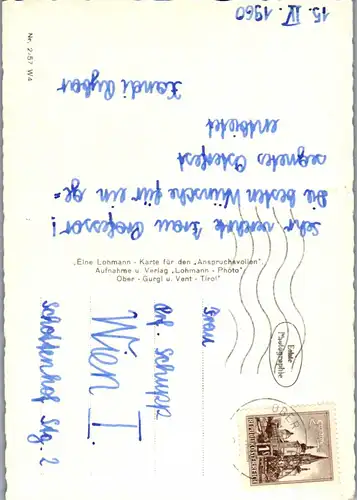 15. IV. 1960
Sehr verehrte Frau Professor!
Die besten Wünsche für ein ge=
segnetes Osterfest
entbietet
Xandi
Nr. 2157 W4
„Eine Lohmann - Karte für den „Anspruchsvollen".
Aufnahme u. Verlag „Lohmann - Photo"
Ober - Gurgl u. Vent - Tirol"
Echte
Photographie
Frau
Prof. Schupp
Wien I.
Schottenhof Stg. 2
REPUBLIK ÖSTERREICH